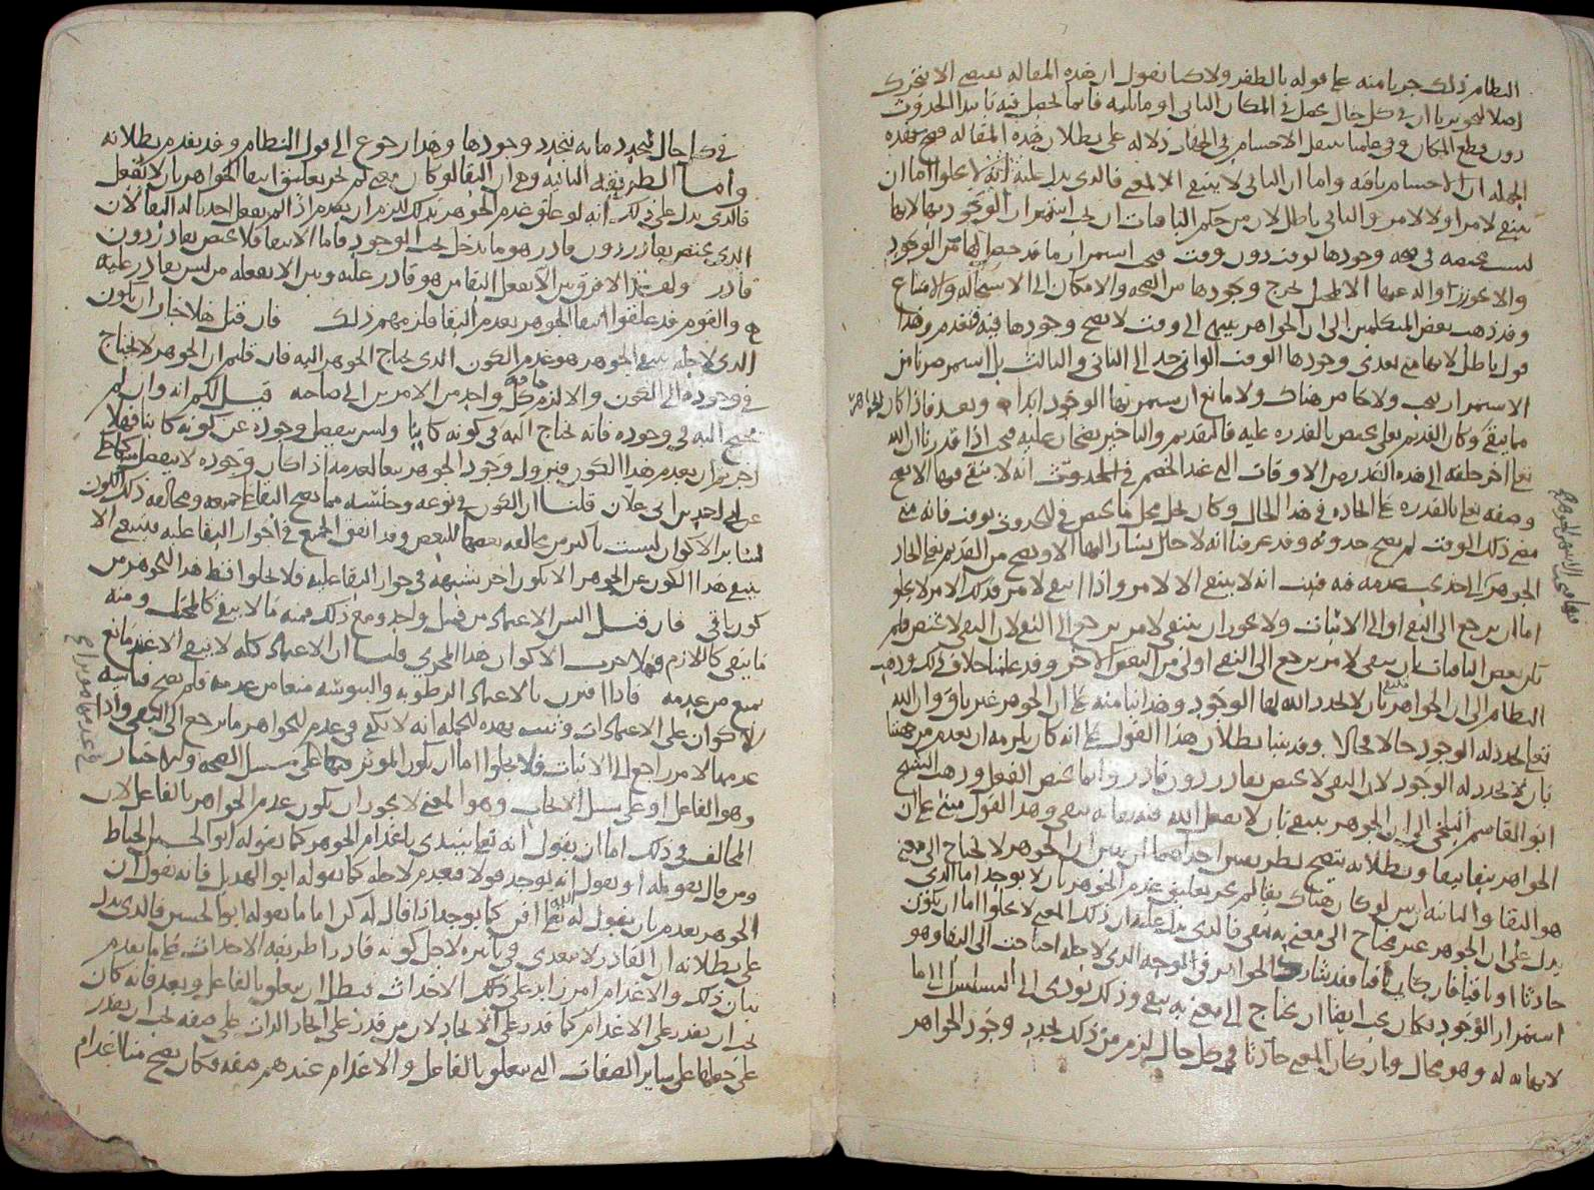 النظام ذلك جريا منه على قوله بالطفر ولانا نقول ان هذه المقالة تقتضي الا يتحرك
اصلا الجوهر لان في كل حال يحصل في المكان الثاني او ما يليه فانما يحصل فيه بابتدا الحدوث
دون قطع المكان وفي علمنا بتنقل الاجسام في الجهات دلالة على بطلان هذه المقالة فصح بهذه
الجملة ان الاجسام باقية واما ان الباقي لا ينتفي الا لمعنى فالذي يدل عليه انه لا يخلوا اما ان
ينتفي لامر او لا لامر والثاني باطل لان من حكم الباقيات ان يجب استمرار الوجود بها لانها
ليست مختصة في صحة وجودها بوقت دون وقت فمتى استمر ان ما قد حصل لها من الوجود
والا يجوز زواله عنها الا لمحيل يخرج وجودها من الصحة والامكان الى الاستحالة والامتناع
وقد ذهب بعض المتكلمين الى ان الجواهر ينتهي الى وقت لا يصح وجودها فيه فتعدم وهذا
قول باطل لانها متى تعدى وجودها الوقت الواحد الى الثاني والثالث بل استمر صار من
الاستمرار يجب ولا حاصر هناك ولا مانع ان يستمر بها الوجود ابدا وبعد فاذا كان الجواهر
مما يبقى وكان القديم تعالى يختص بالقدرة عليه فالتقديم والتاخير يصحان عليه فمتى اذا قدرنا ان الله
تعالى اخر خلقه الى هذه القدر من الاوقات التي عند الخصم في الحدوث انه لا يبقى فيها الا يصح
وصفه تعالى بالقدرة على ايجاده في هذا الحال وكان يحل محل ما يختص في الحدوث بوقت فانه متى
مضى ذلك الوقت لم يصح حدوثه وقد عرفنا انه لا حال يشار اليها الا ويصح من القديم تعالى ايجاد
الجوهر الذي عدمه فيه فثبت انه لا ينتفي الا لامر واذا انتفى لامر فذلك الامر لا يخلو
اما ان يرجع الى النفي او الى الاثبات ولا يجوز ان ينتفي لامر يرجع الى النفي لان النفي لا يختص فلم
يكن بعض الباقيات بان ينتفي لامر يرجع الى النفي اولى من البعض الاخر وقد علمنا خلاف ذلك وذهب
النظام الى ان الجواهر تنتفي بان لا يجدد الله لها الوجود وهذا بنا منه على ان الجوهر غير باق وان الله
تعالى يجدد له الوجود حالا فحالا وقد بينا بطلان هذا القول على انه كان يلزمه ان يعدم من جهتنا
بان لا نجدد له الوجود لان النفي لا يختص بقادر دون قادر وانما يختص الفعل وذهب الشيخ
ابو القاسم البلخي الى ان الجوهر ينتفي بان لا يفعل الله فيه بقا به يبقى وهذا القول مبني على ان
الجواهر يبقا ببقا وبطلانه يتضح بطريقين احداهما ان نبين ان الجوهر لا يحتاج الى معنى
هو البقا والثانية ان نبين لو كان هناك بقا لم يجز تعليق عدم الجوهر بان لا يوجد اما الذي
يدل على ان الجوهر غير محتاج الى معنى به يبقى فالذي يدل عليه ان ذلك المعنى لا يخلوا اما ان يكون
حادثا او باقيا فان كان باقيا فقد شارك الجواهر في الوجه الذي لاجله احتاجت الى البقا وهو
استمرار الوجود فكان يجب ايضا ان يحتاج الى معنى به يبقى وذلك يودي الى التسلسل الى ما
لا نهاية له وهو محال وان كان المعنى حادثا في كل حال لزم من ذلك تجدد وجود الجواهر
في كل حال لتجدد ما به يتجدد وجودها وهذا رجوع الى قول النظام وقد تقدم بطلانه
واما الطريقة الثانية وهي ان البقا لو كان معنى لم يجز تعليق انتفا الجواهر بان لا يفعل
فالذي يدل على ذلك انه لو علق عدم الجوهر بذلك للزم ان يعدم اذا لم يفعل احدنا له البقا لان
الذي يختص بقادر دون قادر هو ما يدخل تحت الوجود فاما الانتفا فلا يختص بقادر دون
قادر ولهذا لا فرق بين الا يفعل البقا من هو قادر عليه وبين الا يفعله من ليس بقادر عليه
والقوم قد علقوا انتفا الجوهر بعدم البقا فلزمهم ذلك فان قيل فهلا جاز ان يكون
الذي لاجله ينتفي الجوهر هو عدم الكون الذي يحتاج الجوهر اليه فان قلتم ان الجوهر لا يحتاج
في وجوده الى الكون والا لزم حاجة كل واحد من الامرين الى صاحبه قيل لكم انه وان لم
يحتج اليه في وجوده فانه يحتاج اليه في كونه كاينا وليس ينفصل وجوده عن كونه كاينا فهلا
اجزتم ان يعدم هذا الكون فيزول وجود الجوهر تبعا لعدمه اذا كان وجوده لا ينفصل
قلنا ان الكون في نوعه وجنسه مما يصح البقا على جميعه ومخالفه ذلك الكون
لسائر الاكوان ليست باكثر من مخالفة بعضها للبعض وقد اتفق الجميع في جواز البقا عليه فينتفي الا
ينتفي هذا الكون عن الجوهر الا بكون اخر شبهه في جواز البقا عليه فلا يخلوا قط هذا الجوهر من
كون باقي فان قيل اليس الاعتماد من قبيل واحد ومع ذلك فمنه ما لا يبقى كالمجتلب ومنه
ما يبقى كاللازم فهلا جرت الاكوان هذا المجرى قلنا ان الاعتماد كله لا يبقى الا عند مانع
يمنع من عدمه فاذا اقترن بالاعتماد الرطوبة واليبوسة منعا من عدمه فلم يصح قياس
الاكوان على الاعتمادات وثبت بهذه الجملة انه لا يكفي في عدم الجواهر ما يرجع الى النفي واذا
عدمها لامر راجع الى الاثبات فلا يخلوا اما ان يكون الموثر فيها على سبيل الصحة والاختيار
وهو الفاعل او على سبيل الايجاب وهو المعنى لا يجوز ان يكون عدم الجواهر بالفاعل لان
المخالف في ذلك اما ان يقول انه تعالى يبتدي باعدام الجوهر كما يقوله ابو الحسين الخياط
ومن قال بقوله او يقول انه يوجد قولا فيعدم لاجله كما يقوله ابو الهذيل فانه يقول ان
الجوهر يعدم بان يقول له الله تعالى افن كما يوجد اذا قال له كن اما ما يقوله ابو الحسين فالذي يدل
على بطلانه ان القادر لا يتعدى في تاثيره لاجل كونه قادرا طريقة الاحداث على ما تقدم
بيان ذلك والاعدام امر زايد على ذلك الاحداث فبطل ان يتعلق بالفاعل وبعد فانه كان
يجب ان يقدر على الاعدام كما قدر على الايجاد لان من قدر على ايجاد الذات على صفة يجب ان يقدر
على جعلها على ساير الصفات التي تتعلق بالفاعل والاعدام عندهم صفة فكان يصح منا اعدام